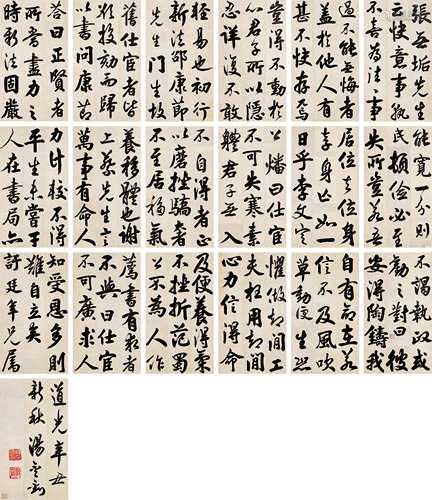 張無垢先生
云快意事孰
不喜為往往事
過不能無悔者
蓋於他人有
甚不快存焉
豈得不動於
心君子所以隱
忍詳復不敢
輕易也初行
新法邵康節
先生門生故
舊仕宦者皆
欲投劾而歸
以書問康節
答曰正賢者
所當盡力之
時新法固嚴
能寬一分則
頓儉必至
失所豈若吾
居位去位身
存身亡如一
日乎李文定
公燔曰仕宦
不可失寒素
體君子無入
不自得者正
以磨挫驕奢
不至居移氣
養移體也謝
上蔡先生言
萬事有命人
力計較不得
平生未嘗干
人在書局亦
不謁執政或
勸之對曰彼
安得陶鑄我
自有命在若
信不及風吹
草動便生恐
懼做卻閒工
夫枉用卻閒
心力信得命
及便養得氣
不挫折范蜀
公不為人作
薦書有求者
不與曰仕宦
不可廣求人
知受恩多則
難自立矣
訏廷年兄屬
道光辛丑
新秋湯金釗